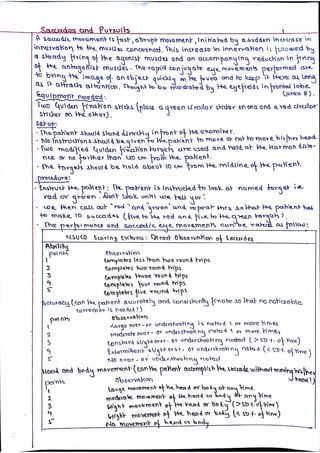 Saccades and Pursuits
A saccadic movement is fast, abrupt movement, initiated by a sudden increase in
innervation to the muscles concerned. This increase in innervation is followed by
a steady firing of the agonist muscles and an accompanying reduction in firing
of the antagonist muscles. The rapid conjugate eye movements performed are
to bring the image of an object quickly on the fovea and to keep it there as long
as it attracts attention. Thought to be mediated by the eyefields in frontal lobe.
(area 8).
Equipment needed:
Two Gulden fixation sticks (place a green circular sticker on one and a red circular
sticker on the other).
Set-up:
The patient should stand directly in front of the examiner.
No instructions should be given to the patient to move or not to move his/her head.
Two modified Gulden fixation targets are used and held at the Harmon dista-
nce or no farther than 40 cm from the patient.
The targets should be held about 10 cm from the midline of the patient.
procedure:
Instruct the patient: The patient is instructed to look at named target i.e.
red or green. Don't look until we tell you.
we then call out "red" and "green" and repeat this so that the patient has
to make 10 saccades (five to the red and five to the green targets).
The performance and saccadic eye movement can be rated as follow:
NSUCO Scoring Criteria: Direct Observation of Saccades
Ability
points Observation
1 Completes less than two round trips
2 Completes two round trips
3 Completes three round trips
4 Completes four round trips
5 Completes five round trips
Accuracy (Can the patient accurately and consistently fixate so that no noticeable
correction is needed?)
points Observation
1 Large over- or undershooting is noted 1 or more times
2 Moderate over- or undershooting noted 1 or more times
3 Constant slight over- or undershooting noted (>50% of time)
4 Intermittent slight over- or undershooting noted (<50% of time)
5 No over- or undershooting noted
Head and body movement (can the patient accomplish the saccade without moving his/her
head?)
points Observation
1 Large movement of the head or body at any time
2 moderate movement of the head or body at any time
3 Slight movement of the head or body (>50% of time)
4 Slight movement of the head or body (<50% of time)
5 No movement of head or body